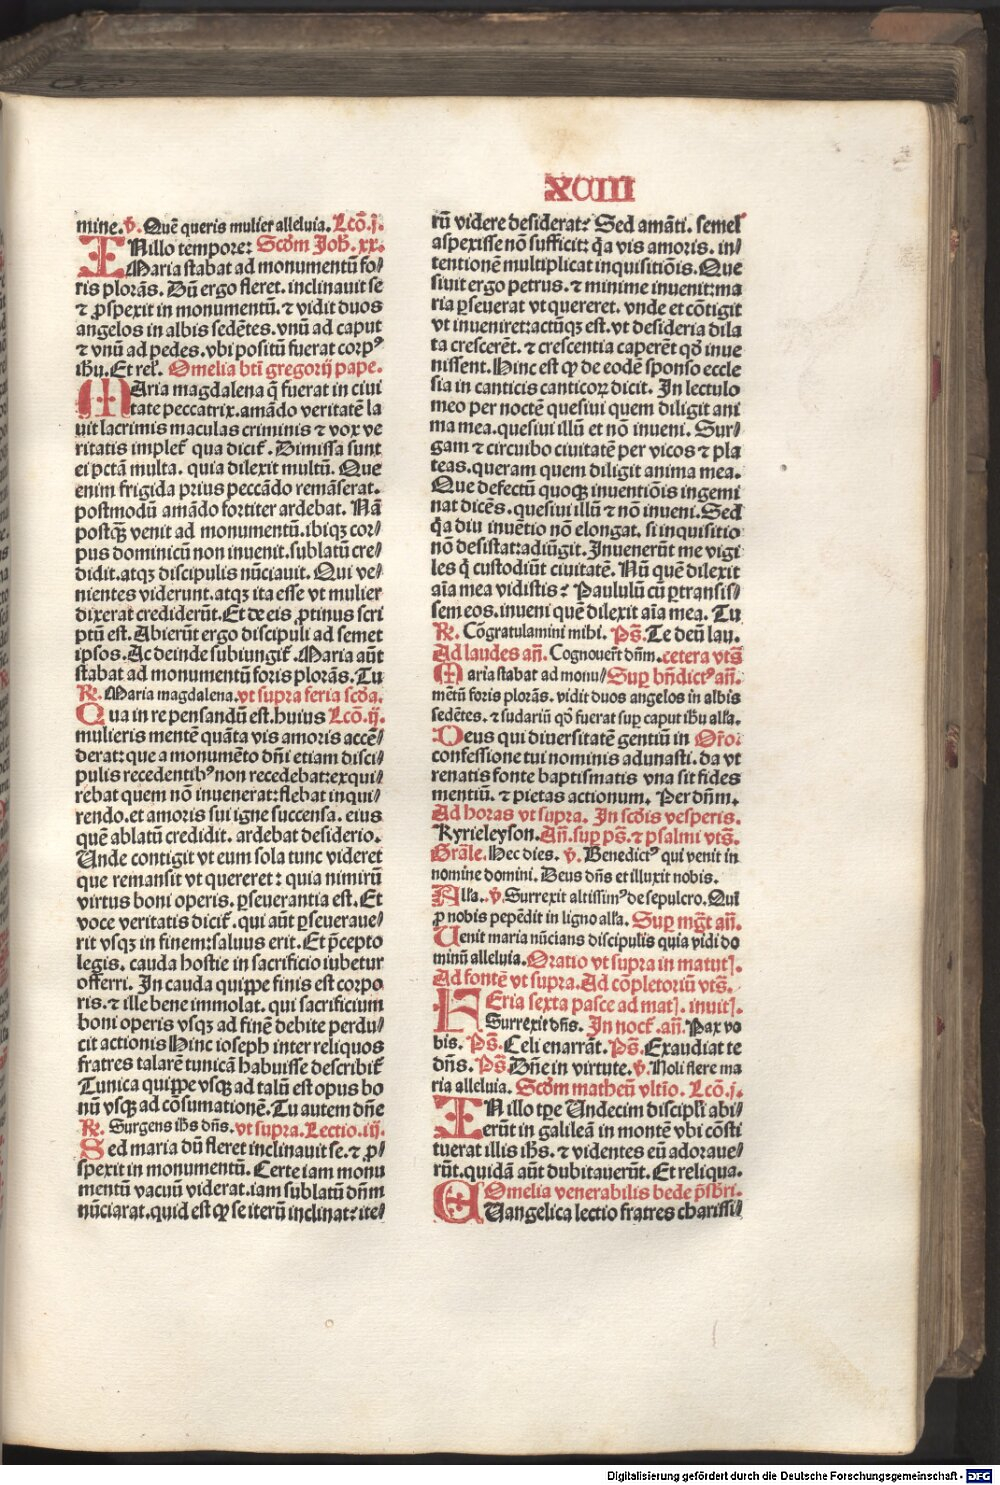 XCIII
mine. v̄. Quē queris mulier alleluia. Lcō. j.
IN illo tempore: Scd̄m Joh̄. xx.
Maria stabat ad monumentū fo⸗
ris plorās. Dū ergo fleret. inclinauit se
⁊ ꝓspexit in monumentū. ⁊ vidit duos
angelos in albis sedētes. vnū ad caput
⁊ vnū ad pedes. vbi positū fuerat corpꝰ
ih̄u. Et rel'. Omelia bt̄i gregorij pape.
MAria magdalena q̄ fuerat in ciui
tate peccatrix. amādo veritatē la
uit lacrimis maculas criminis ⁊ vox ve
ritatis impletˀ qua dicitˀ. Dimissa sunt
ei pctā multa. quia dilexit multū. Que
enim frigida prius peccādo remāserat.
postmodū amādo fortiter ardebat. Nā
postqꝫ venit ad monumentū. ibiqꝫ cor⸗
pus dominicū non inuenit. sublatū cre⸗
didit. atqꝫ discipulis nūciauit. Qui ve⸗
nientes viderunt. atqꝫ ita esse vt mulier
dixerat crediderūt. Et de eis ꝓtinus scri
ptū est. Abierūt ergo discipuli ad semet
ipsos. Ac deinde subiungitˀ. Maria aūt
stabat ad monumentū foris plorās. Tu
R̄. Maria magdalena. vt supra feria scd̄a.
Qua in re pensandū est. huius Lcō. ij.
mulieris mentē quāta vis amoris accē⸗
derat: que a monumēto dn̄i etiam disci⸗
pulis recedentibꝰ non recedebat: exqui⸗
rebat quem nō inuenerat: flebat inqui⸗
rendo. et amoris sui igne succensa. eius
quē ablatū credidit. ardebat desiderio.
Unde contigit vt eum sola tunc videret
que remansit vt quereret: quia nimirū
virtus boni operis. ꝑseuerantia est. Et
voce veritatis dicitˀ. qui aūt ꝑseueraue⸗
rit vsqꝫ in finem: saluus erit. Et p̄cepto
legis. cauda hostie in sacrificio iubetur
offerri. In cauda quippe finis est corpo
ris. ⁊ ille bene immolat. qui sacrificium
boni operis vsqꝫ ad finē debite perdu⸗
cit actionis Hinc ioseph inter reliquos
fratres talarē tunicā habuisse describitˀ
Tunica quippe vsqꝫ ad talū est opus bo
nū vsqꝫ ad cōsumationē. Tu autem dn̄e
R̄. Surgens ih̄s dn̄s. vt supra. Lectio. iij.
Sed maria dū fleret inclinauit se. ⁊ ꝓ⸗
spexit in monumentū. Certe iam monu
mentū vacuū viderat. iam sublatū dn̄m
nūciarat. quid est qꝙ se iterū inclinat: ite⸗
rū videre desiderat: Sed amāti. semel
aspexisse nō sufficit: q̄a vis amoris. in⸗
tentionē multiplicat inquisitiōis. Que
siuit ergo petrus. ⁊ minime inuenit: ma
ria ꝑseuerat vt quereret. vnde et cōtigit
vt inueniret: actūqꝫ est. vt desideria dila
ta crescerēt. ⁊ crescentia caperēt qd̄ inue
nissent. Hinc est qꝙ de eodē sponso eccle
sia in canticis canticoꝝ dicit. In lectulo
meo per noctē quesiui quem diligit ani
ma mea. quesiui illū et nō inueni. Sur⸗
gam ⁊ circuibo ciuitatē per vicos ⁊ pla
teas. queram quem diligit anima mea.
Que defectū quoqꝫ inuentiōis ingemi
nat dicēs. quesiui illū ⁊ nō inueni. Sed
q̄a diu inuētio nō elongat. si inquisitio
nō desistat: adiūgit. Inuenerūt me vigi
les q̄ custodiūt ciuitatē. Nū quē dilexit
aīa mea vidistis? Paululū cū ꝑtransis⸗
sem eos. inueni quē dilexit aīa mea. Tu
R̄. Cōgratulamini mihi. Ps̄. Te deū lau.
Ad laudes an̄. Cognouerūt dn̄m. cetera vts̄
Maria stabat ad monu⸗ Suꝑ bn̄dictꝰ an̄.
mētū foris plorās. vidit duos angelos in albis
sedētes. ⁊ sudariū qd̄ fuerat suꝑ caput ih̄u all'a.
Deus qui diuersitatē gentiū in Or̄o.
confessione tui nominis adunasti. da vt
renatis fonte baptismatis vna sit fides
mentiū. ⁊ pietas actionum. Per dn̄m.
Ad horas vt supra. In scd̄is vesperis.
Kyrieleyson. An̄. suꝑ ps̄. ⁊ psalmi vts̄.
Grāle. Hec dies. v̄. Benedictꝰ qui venit in
nomine domini. Deus dn̄s et illuxit nobis.
All'a. v̄. Surrexit altissimꝰ de sepulcro. Qui
ꝓ nobis pepēdit in ligno all'a. Suꝑ mg̅t an̄.
Uenit maria nūcians discipulis quia vidi do
minū alleluia. Oratio vt supra in matutꝭ.
Ad fontē vt supra. Ad cōpletoriū vts̄.
FEria sexta pasce ad matꝭ. inuitꝭ.
Surrexit dn̄s. In noctˀ. an̄. Pax vo
bis. Ps̄. Celi enarrāt. Ps̄. Exaudiat te
dn̄s. Ps̄ Dn̄e in virtute. v̄. Noli flere ma
ria alleluia. Scd̄m matheū vltīo. Lcō. j.
IN illo tp̄e Undecim discipl'i abi⸗
erūt in galileā in montē vbi cōsti
tuerat illis ih̄s. ⁊ videntes eū adoraue⸗
rūt. quidā aūt dubitauerūt. Et reliqua.
Omelia venerabilis bede p̄sb̄ri.
EUangelica lectio fratres charissi⸗
Digitalisierung gefördert durch die Deutsche Forschungsgemeinschaft - DFG